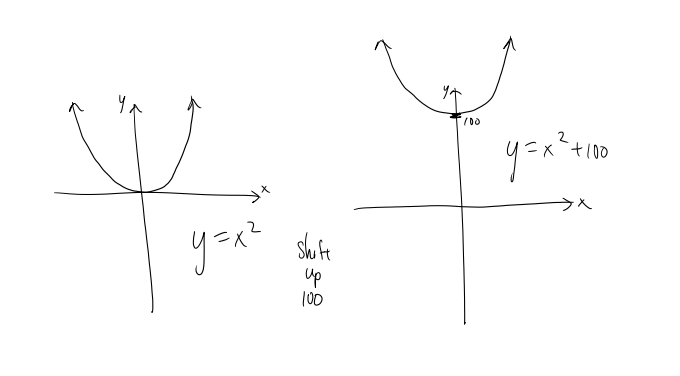 y
x
y = x²
shift
up
100
y
100
y = x² + 100
x